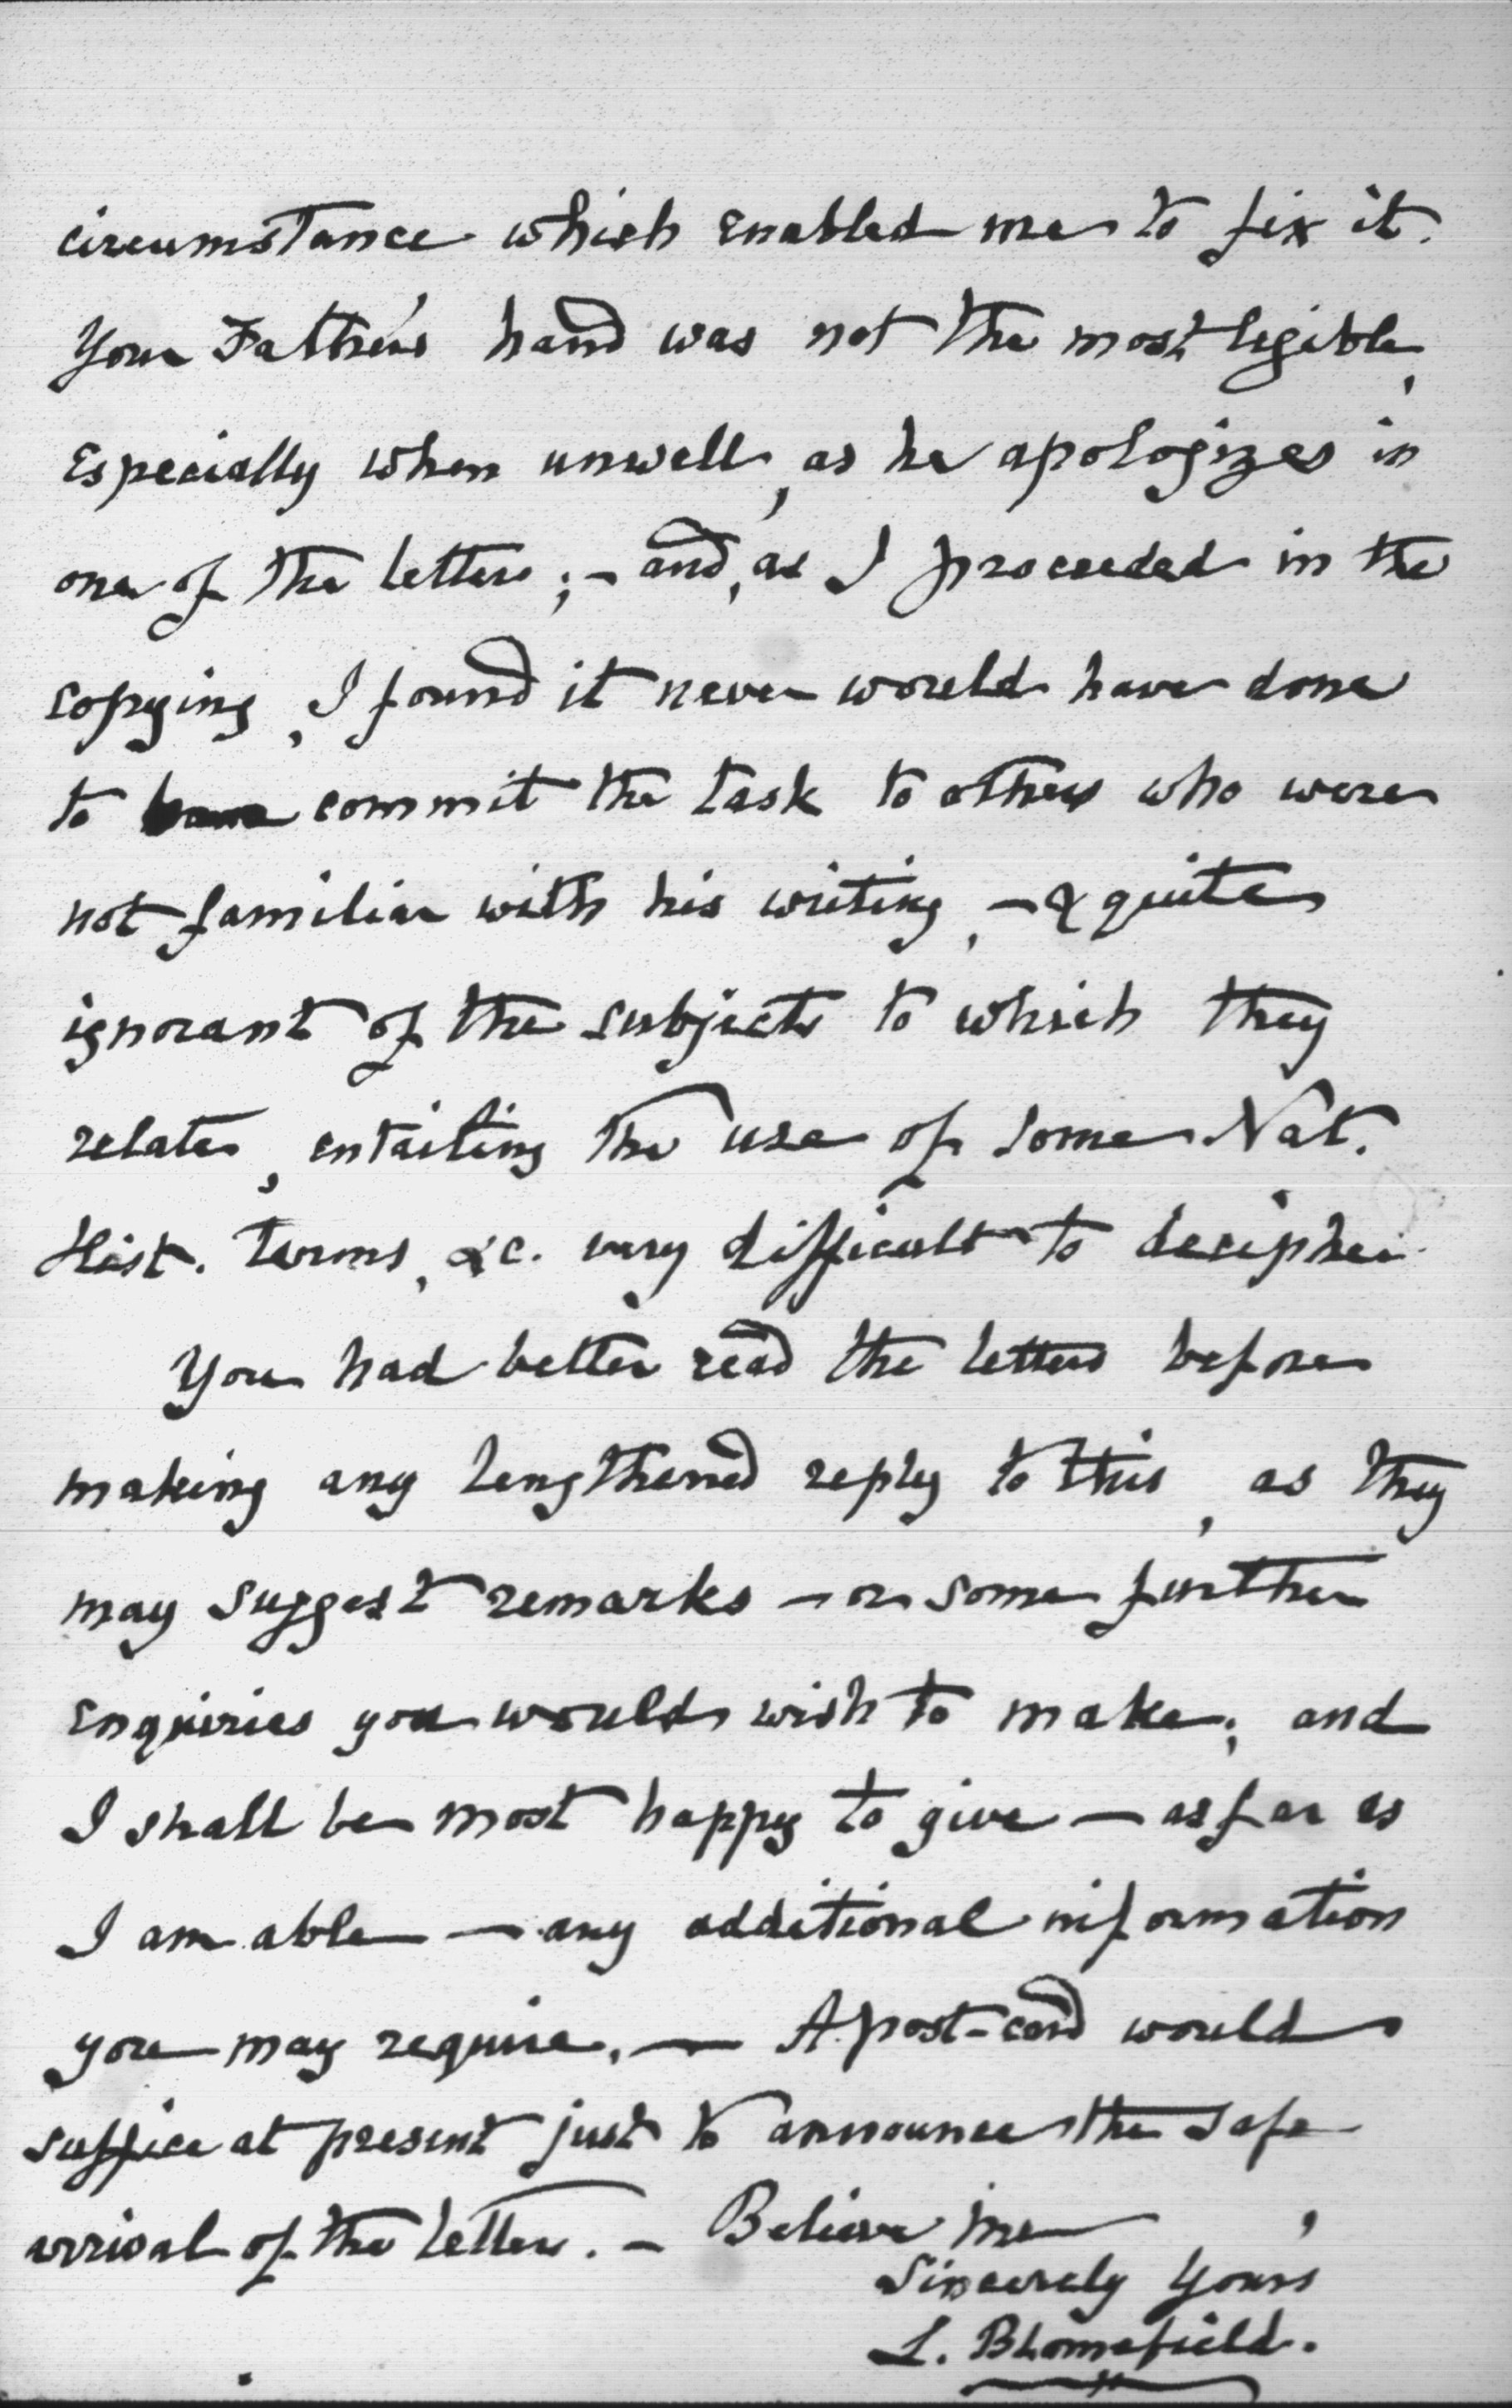 circumstance which enabled me to fix it.
Your Father's hand was not the most legible,
especially when unwell, as he apologizes in
one of the letters; – and, as I proceeded in the
copying, I found it never would have done
to commit the task to others who were
not familiar with his writing, – & quite
ignorant of the subjects to which they
relate, entailing the use of some Nat.
Hist. terms, &c. very difficult to decipher.
You had better read the letters before
making any lengthened reply to this, as they
may suggest remarks – or some further
enquiries you would wish to make; and
I shall be most happy to give – as far as
I am able – any additional information
you may require. — A post-card would
suffice at present just to announce the safe
arrival of the letters. – Believe me
Sincerely Yours
L. Blomefield.